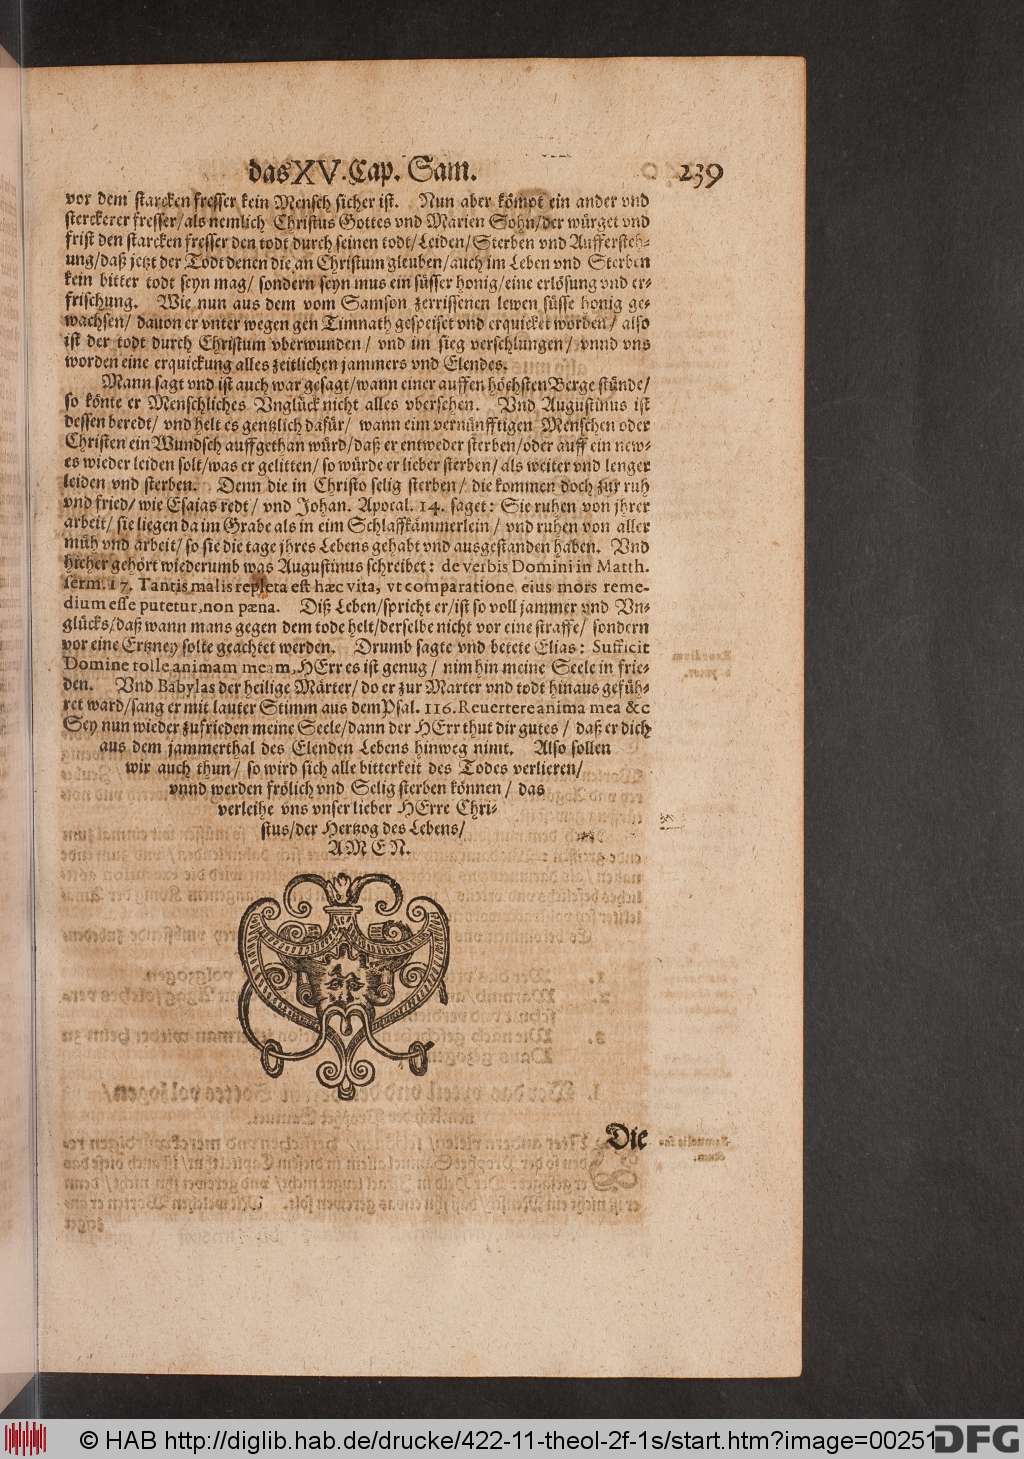 das XV. Cap. Sam. 239
vor dem starcken fresser kein Mensch sicher ist. Nun aber kömpt ein ander vnd
sterckerer fresser/ als nemlich Christus Gottes vnd Marien Sohn/ der würget vnd
frist den starcken fresser den todt durch seinen todt/ Leiden/ Sterben vnd Auffersteh-
ung/ daß jetzt der Todt denen die an Christum gleuben/ auch im Leben vnd Sterben
kein bitter todt seyn mag/ sondern seyn mus ein süsser honig/ eine erlösung vnd er-
frischung. Wie nun aus dem vom Samson zerrissenen lewen süsse honig ge-
wachsen/ dauon er vnter wegen gen Timnath gespeiset vnd erquicket worden/ also
ist der todt durch Christum vberwunden/ vnd im sieg verschlungen/ vnnd vns
worden eine erquickung alles zeitlichen jammers vnd Elendes.
Mann sagt vnd ist auch war gesagt/ wann einer auffen höchsten Berge stünde/
so könte er Menschliches Vnglück nicht alles vbersehen. Vnd Augustinus ist
dessen beredt/ vnd helt es gentzlich dafür/ wann eim vernünfftigen Menschen oder
Christen ein Wundsch auffgethan würd/ daß er entweder sterben/ oder auff ein new-
es wieder leiden solt/ was er gelitten/ so würde er lieber sterben/ als weiter vnd lenger
leiden vnd sterben. Denn die in Christo selig sterben/ die kommen doch zur ruh
vnd fried/ wie Esaias redt/ vnd Johan. Apocal. 14. saget: Sie ruhen von jhrer
arbeit/ sie liegen da im Grabe als in eim Schlaffkämmerlein/ vnd ruhen von aller
müh vnd arbeit/ so sie die tage jhres Lebens gehabt vnd ausgestanden haben. Vnd
hieher gehört wiederumb was Augustinus schreibet: de verbis Domini in Matth.
serm. 17. Tantis malis repleta est hæc vita, vt comparatione eius mors reme-
dium esse putetur, non pæna. Diß Leben/ spricht er/ ist so voll jammer vnd Vn-
glücks/ daß wann mans gegen dem tode helt/ derselbe nicht vor eine straffe/ sondern
vor eine Ertzney solte geachtet werden. Drumb sagte vnd betete Elias: Sufficit
Domine tolle animam meam, HErr es ist genug/ nim hin meine Seele in frie-
den. Vnd Babylas der heilige Märter/ do er zur Marter vnd todt hinaus gefüh-
ret ward/ sang er mit lauter Stimm aus dem Psal. 116. Reuertere anima mea &c
Sey nun wieder zufrieden meine Seele/ dann der HErr thut dir gutes/ daß er dich
aus dem jammerthal des Elenden Lebens hinweg nimt. Also sollen
wir auch thun/ so wird sich alle bitterkeit des Todes verlieren/
vnnd werden frölich vnd Selig sterben können/ das
verleihe vns vnser lieber HErre Chri-
stus/ der Hertzog des Lebens/
AMEN.
Die
© HAB http://diglib.hab.de/drucke/422-11-theol-2f-1s/start.htm?image=00251
DFG